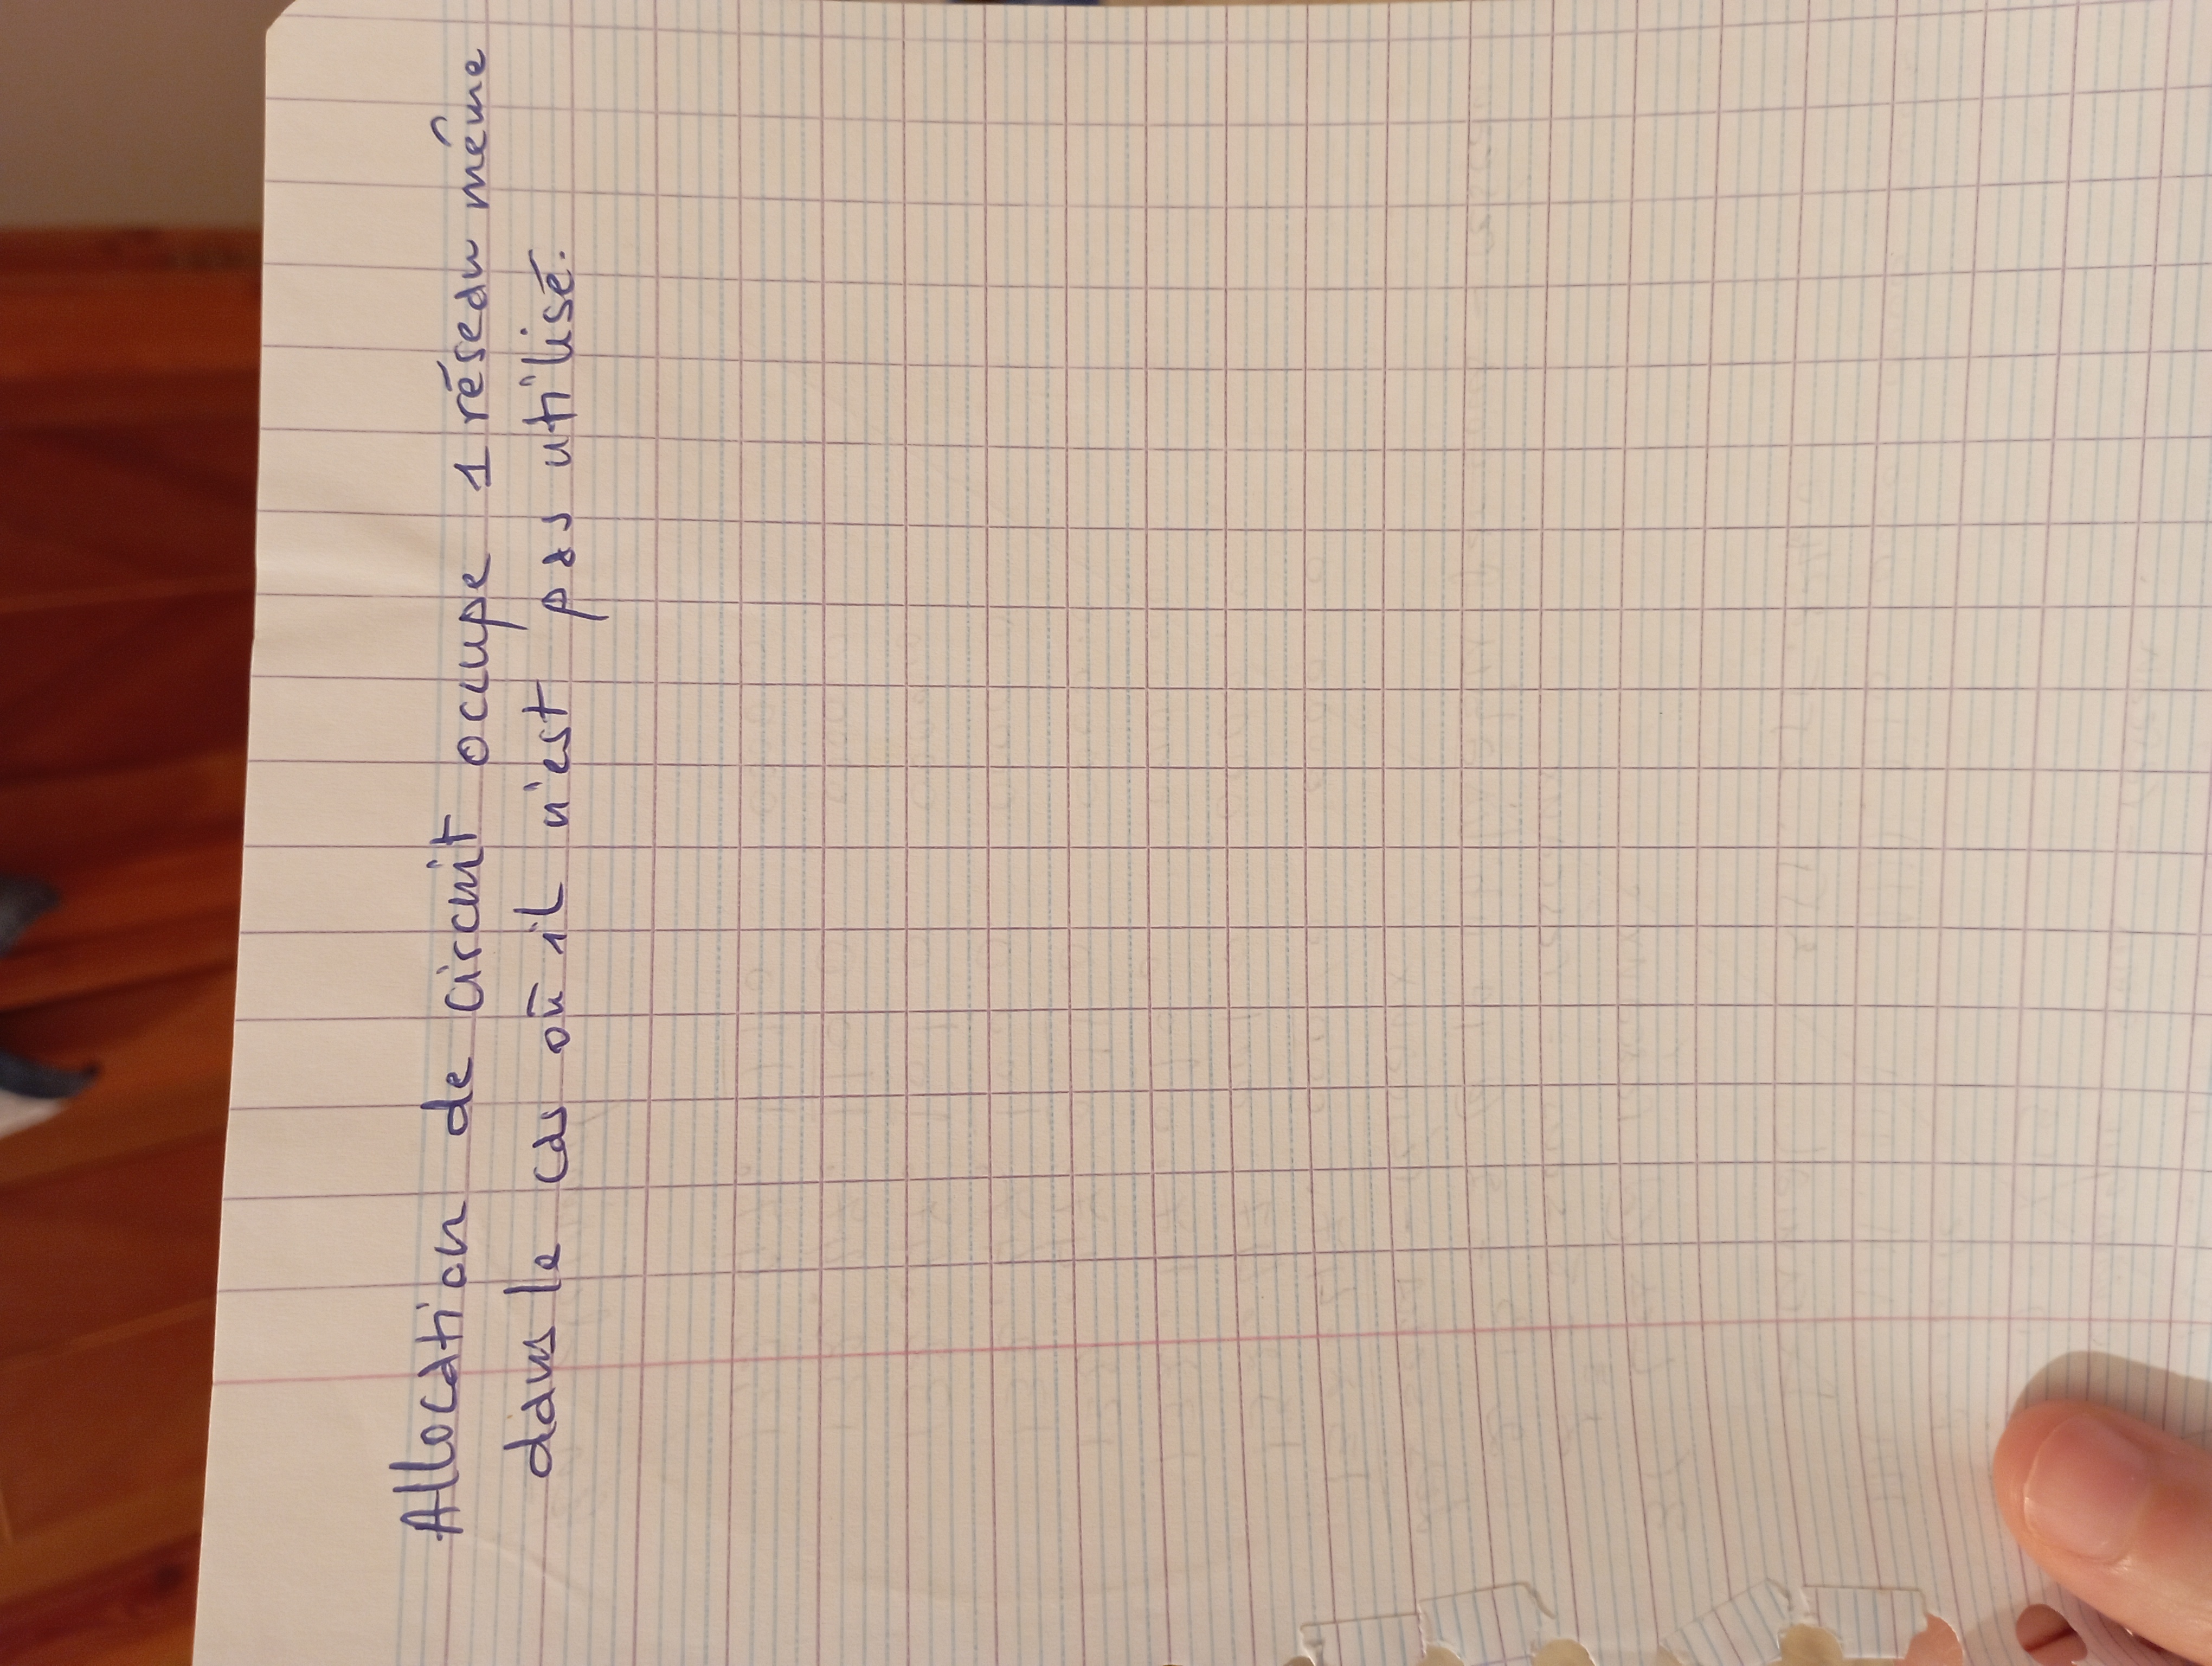 Allocation de circuit occupe 1 réseau même
dans le cas où il n'est pas utilisé.